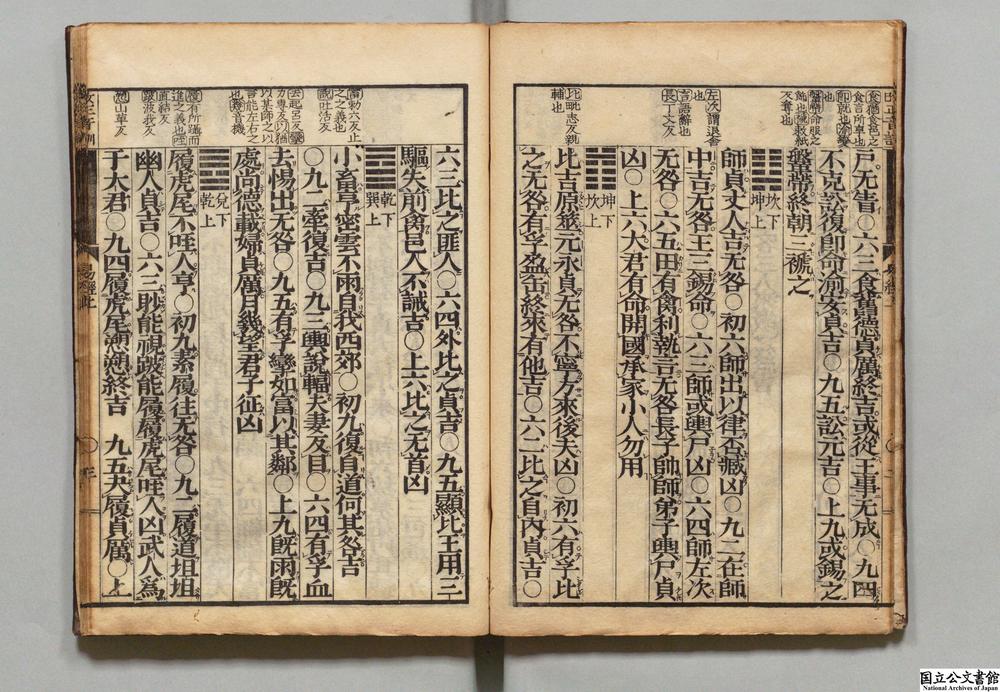 戸无眚○六三食舊德貞厲終吉或從王事无成○九四
不克訟復即命渝安貞吉○九五訟元吉○上九或錫之
鞶帶終朝三褫之
坎下
坤上
師貞丈人吉无咎○初六師出以律否臧凶○九二在師
中吉无咎王三錫命○六三師或輿尸凶○六四師左次
无咎○六五田有禽利執言无咎長子帥師弟子輿尸貞
凶○上六大君有命開國承家小人勿用
坤下
坎上
比吉原筮元永貞无咎不寧方來後夫凶○初六有孚比
之无咎有孚盈缶終來有他吉○六二比之自內貞吉○
左次謂退舍
也
言語辭也
長丁丈反
比毗志反親
輔也
六三比之匪人○六四外比之貞吉○九五顯比王用三
驅失前禽邑人不誡吉○上六比之无首凶
乾下
巽上
小畜亨密雲不雨自我西郊○初九復自道何其咎吉
○九二牽復吉○九三輿說輻夫妻反目○六四有孚血
去惕出无咎○九五有孚攣如富以其鄰○上九既雨既
處尚德載婦貞厲月幾望君子征凶
兌下
乾上
履虎尾不咥人亨○初九素履往无咎○九二履道坦坦
幽人貞吉○六三眇能視跛能履履虎尾咥人凶武人爲
于大君○九四履虎尾愬愬終吉 九五夬履貞厲○上
畜勑六反止
之之義也
說吐活反
去起呂反
以其師之以
言能左右之
也幾音機
履有所躡而
進之義也咥
直結反
跛波我反
愬山革反
国立公文書館
National Archives of Japan